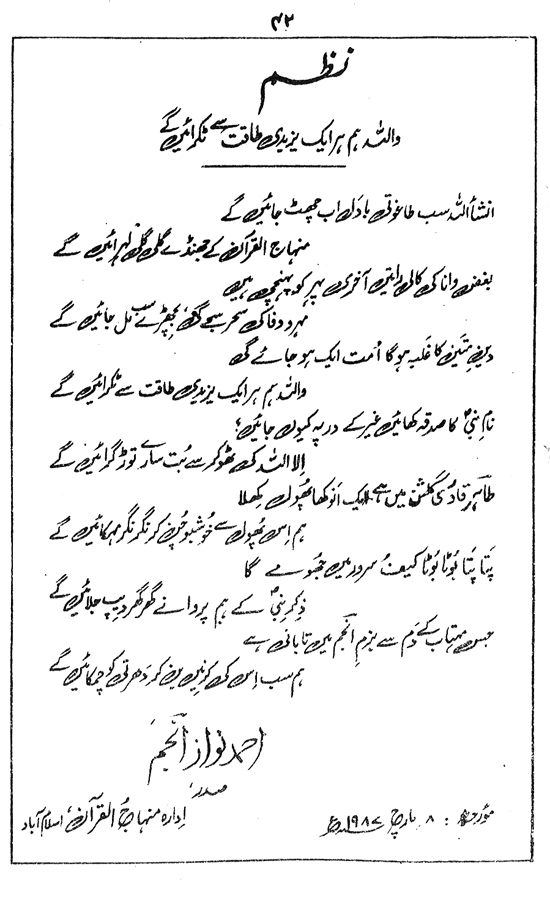 ۴۲
نظم
واللہ ہم ہر ایک یزیدی طاقت سے ٹکرائیں گے
انشأ اللہ سب طاغوتی بادل اب چھٹ جائیں گے
منہاج القرآن کے جھنڈے گلی گلی لہرائیں گے
بغض و انا کی کالی راتیں آخری پہر کو پہنچی ہیں
مہر و وفا کی سحر سجے گی، بچھڑے سب مل جائیں گے
دینِ متین کا غلبہ ہو گا اُمت ایک ہو جائے گی
واللہ ہم ہر ایک یزیدی طاقت سے ٹکرائیں گے
نامِ نبیؐ کا صدقہ کھائیں غیر کے در پہ کیوں جائیں؟
اِلا اللہ کی ٹھوکر سے بُت سارے توڑ گرائیں گے
طاہر قادری گلشن میں ہے ایک انوکھا پھول کِھلا
ہم اِس پھول سے خوشبو چُن کر نگر نگر مہکائیں گے
پتا پتا بُوٹا بُوٹا کیف و سرور میں جُھومے گا
ذِکرِ نبیؐ کے ہم پروانے گھر گھر دیپ جلائیں گے
جس مہتاب کے دَم سے بزمِ انجم میں تابانی ہے
ہم سب اِس کی کرنیں بن کر دَھرتی کو چمکائیں گے
احمد نواز انجم
صدر،
اِدارہ منہاجُ القرآن، اسلام آباد
مورخہ : ۸ مارچ ۱۹۸۷ء